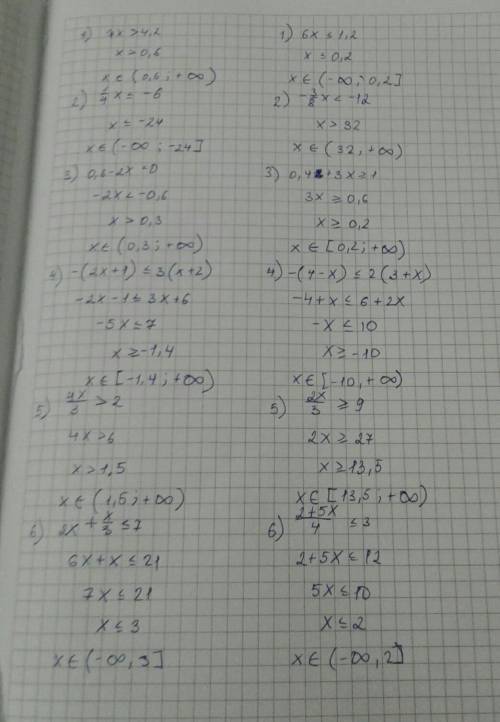 1) 7x > 4,2
x > 0,6
x ∈ (0,6; +∞)
2) 1/4 x ≤ -6
x ≤ -24
x ∈ (-∞; -24]
3) 0,6-2x < 0
-2x < -0,6
x > 0,3
x ∈ (0,3; +∞)
4) -(2x+1) ≤ 3(x+2)
-2x-1 ≤ 3x+6
-5x ≤ 7
x ≥ -1,4
x ∈ [-1,4; +∞)
5) 4x/3 > 2
4x > 6
x > 1,5
x ∈ (1,5; +∞)
6) 2x + x/3 ≤ 7
6x+x ≤ 21
7x ≤ 21
x ≤ 3
x ∈ (-∞, 3]
1) 6x ≤ 1,2
x ≤ 0,2
x ∈ (-∞; 0,2]
2) -3/8 x < -12
x > 32
x ∈ (32, +∞)
3) 0,4+3x ≥ 1
3x ≥ 0,6
x ≥ 0,2
x ∈ [0,2; +∞)
4) -(4-x) ≤ 2(3+x)
-4+x ≤ 6+2x
-x ≤ 10
x ≥ -10
x ∈ [-10, +∞)
5) 2x/3 ≥ 9
2x ≥ 27
x ≥ 13,5
x ∈ [13,5; +∞)
6) 2+5x/4 ≤ 3
2+5x ≤ 12
5x ≤ 10
x ≤ 2
x ∈ (-∞, 2]